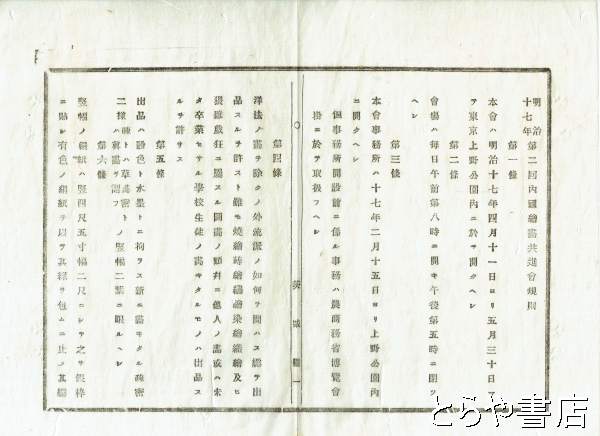 明治
十七年 第二回內國繪畵共進會規則
第一條
本會ハ明治十七年四月十一日ヨリ五月三十日マ
テ東京上野公園內ニ於テ開クヘシ
第二條
會場ハ每日午前第八時ニ開キ午後第五時ニ閉ツ
ヘシ
第三條
本會事務所ハ十七年二月十五日ヨリ上野公園內
ニ開クヘシ
但事務所開設前ニ係ル事務ハ農商務省博覽會
掛ニ於テ取扱フヘシ
茨城縣
第四條
洋法ノ畵ヲ除クノ外流派ノ如何ヲ問ハス總テ出
品スルヲ許スト雖モ燒繪蒔繪染繪織繪及ヒ
狂戲ニ屬スル圖畵ノ類幷ニ他人ノ畵或ハ未
タ卒業セサル學校生徒ノ畵キタルモノハ出品ス
ルヲ許サス
第五條
出品ハ設色ト水墨トニ拘ラス新ニ畵キタル疎密
二樣ノ竪幅二葉ニ限ルヘシ
疎トハ草畵密トハ眞畵ヲ謂フ
第六條
竪幅ノ絹紙ハ竪四尺五寸幅二尺ニシテ之ヲ假枠
ニ貼シ有色ノ絹紙ヲ以テ其緣ヲ包ムニ止メ其繪
とらや書店